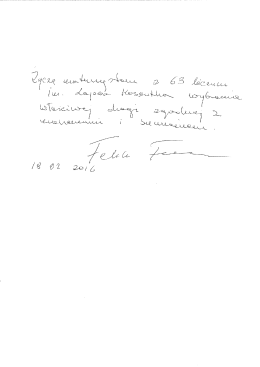 Życzę maturzystom z 63 liceum
im. Lajosa Kossutha wybrania
właściwej drogi zgodnej z
marzeniami i sumieniem.
18 03 2016